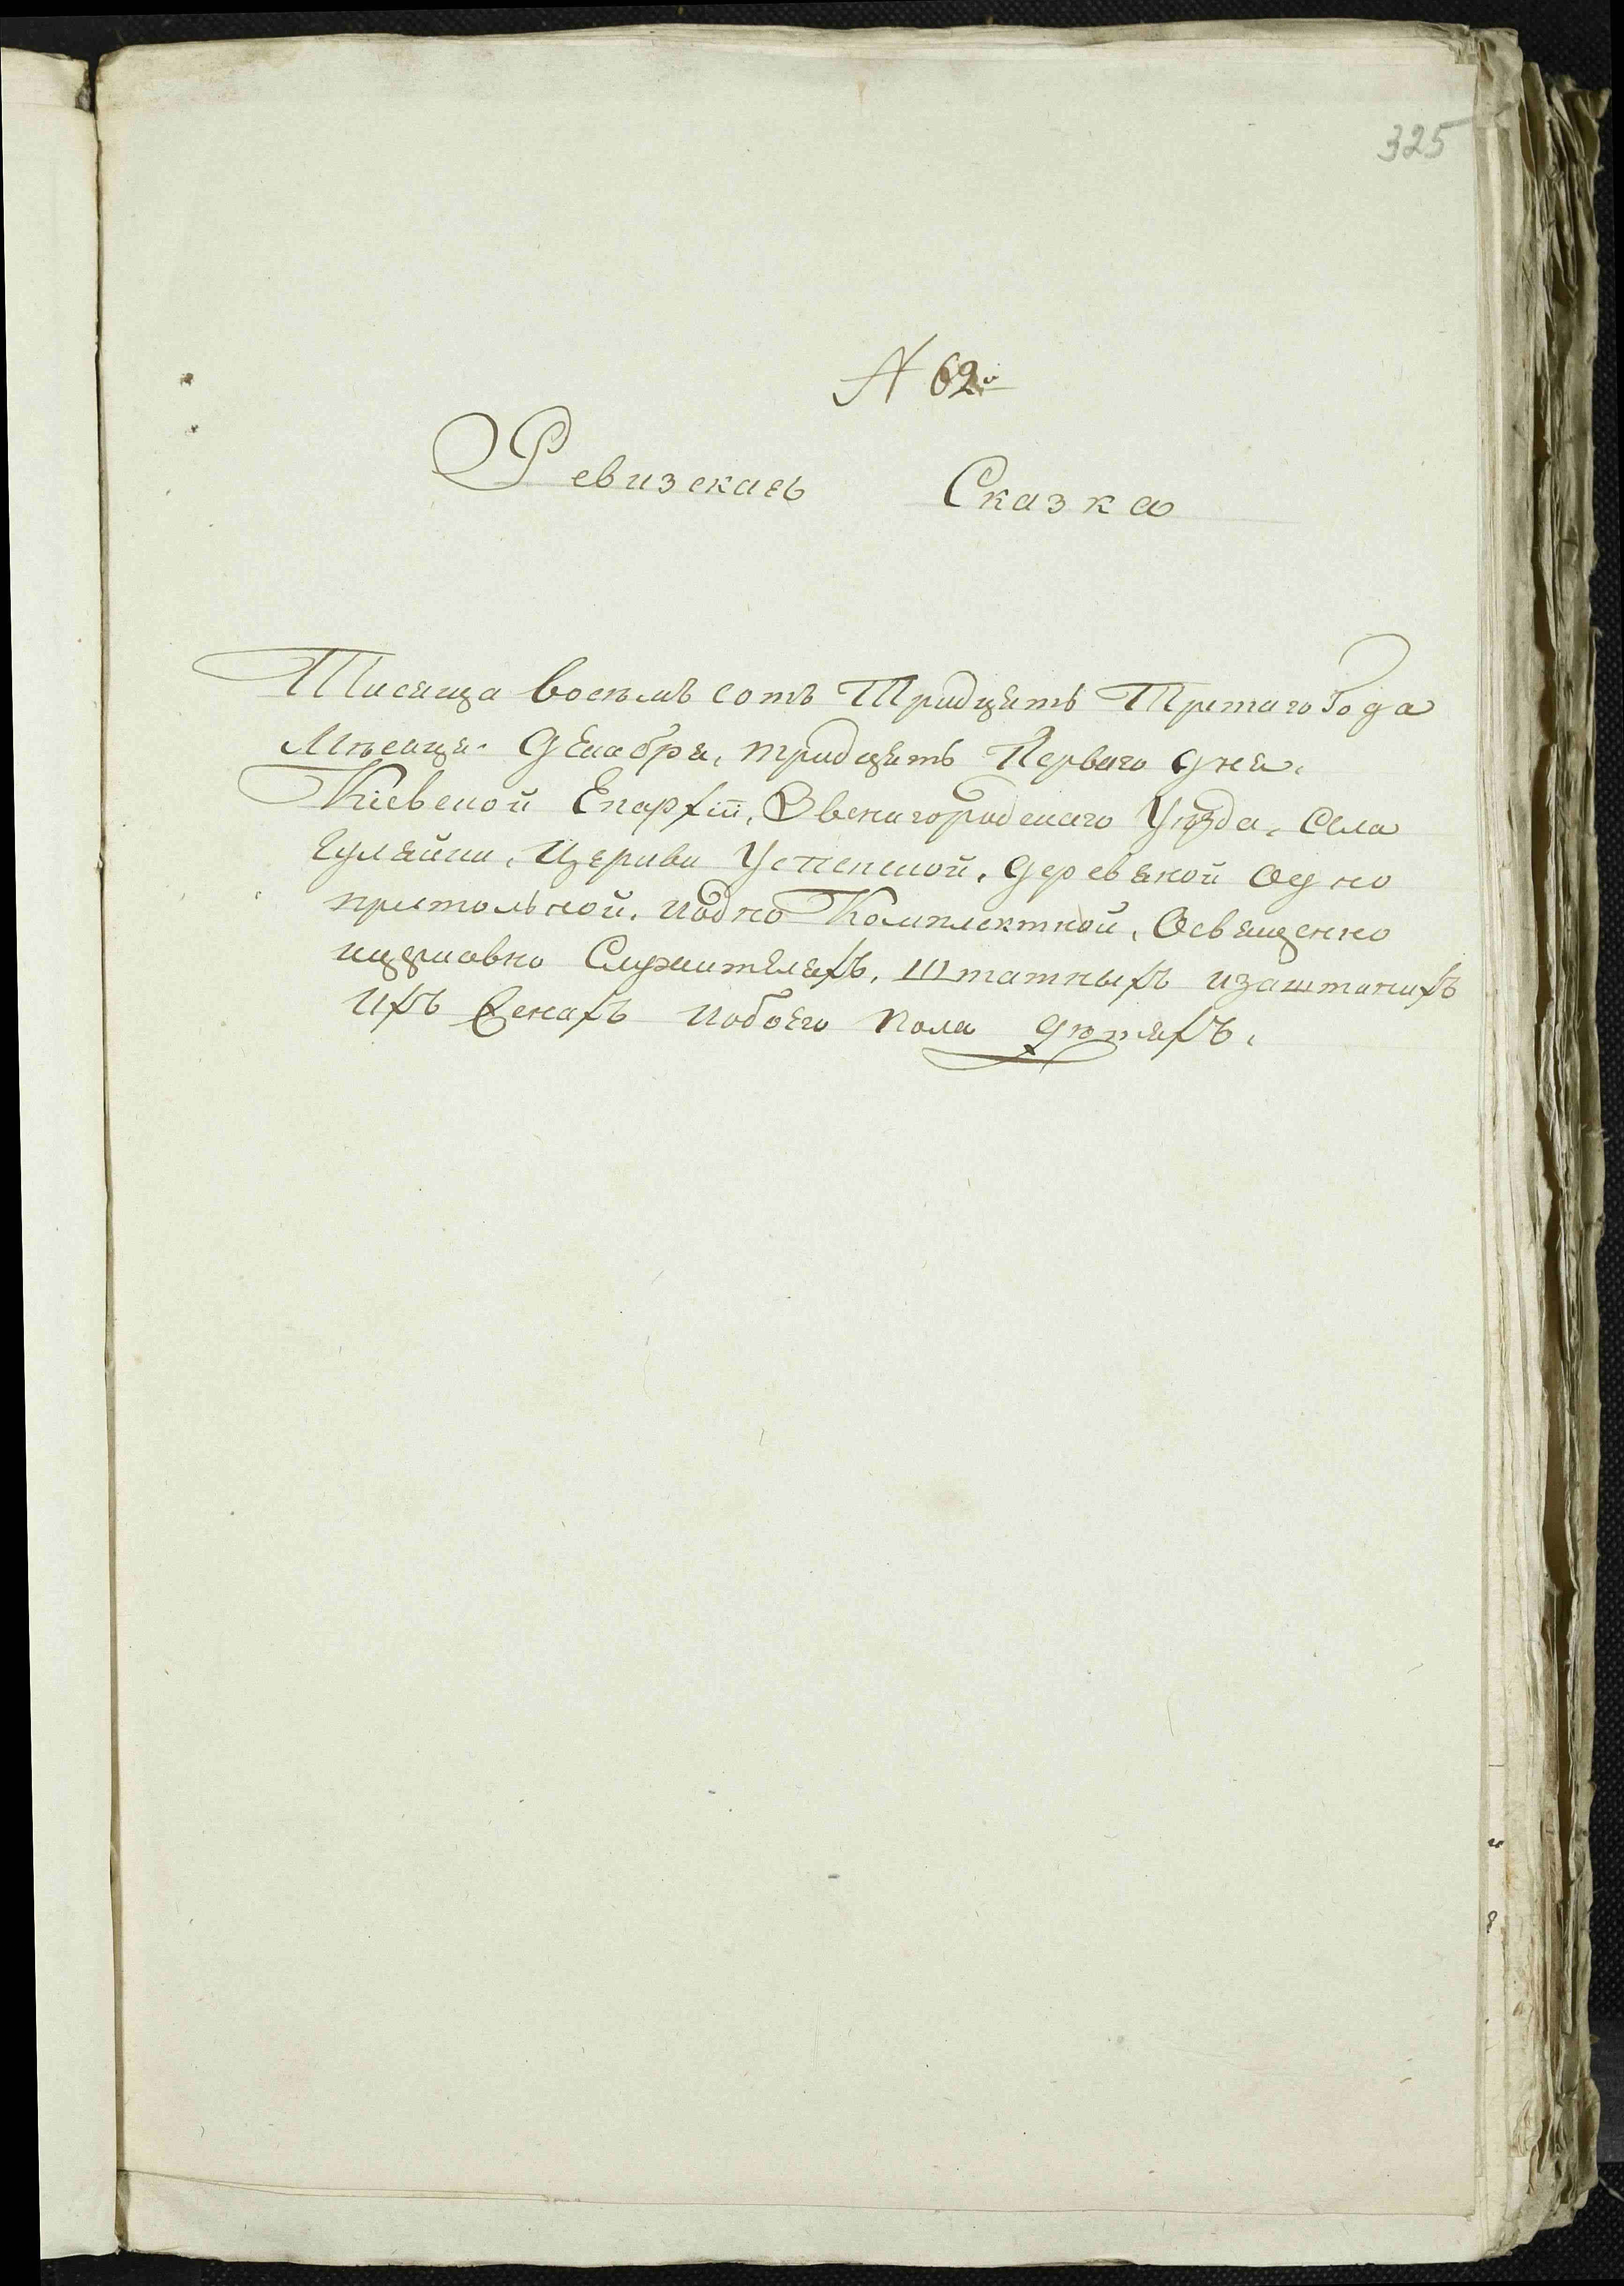 325
№ 62й
Ревизскаѣ Сказка
Тисяща восѣмъ сотъ Тридцять Третаго Года
Мѣсяца Декабря, тридцять Перваго дня,
Кіевской Епархіи, Звенигородскаго Уѣзда, Села
Гуляйки, Церкви Успенской, деревяной одно
престольной, иодно Комплектной, Освященно
ицерковно Служителяхъ, Штатныхъ изаштатихъ
Ихъ Женахъ иобоего Пола Дѣтяхъ,